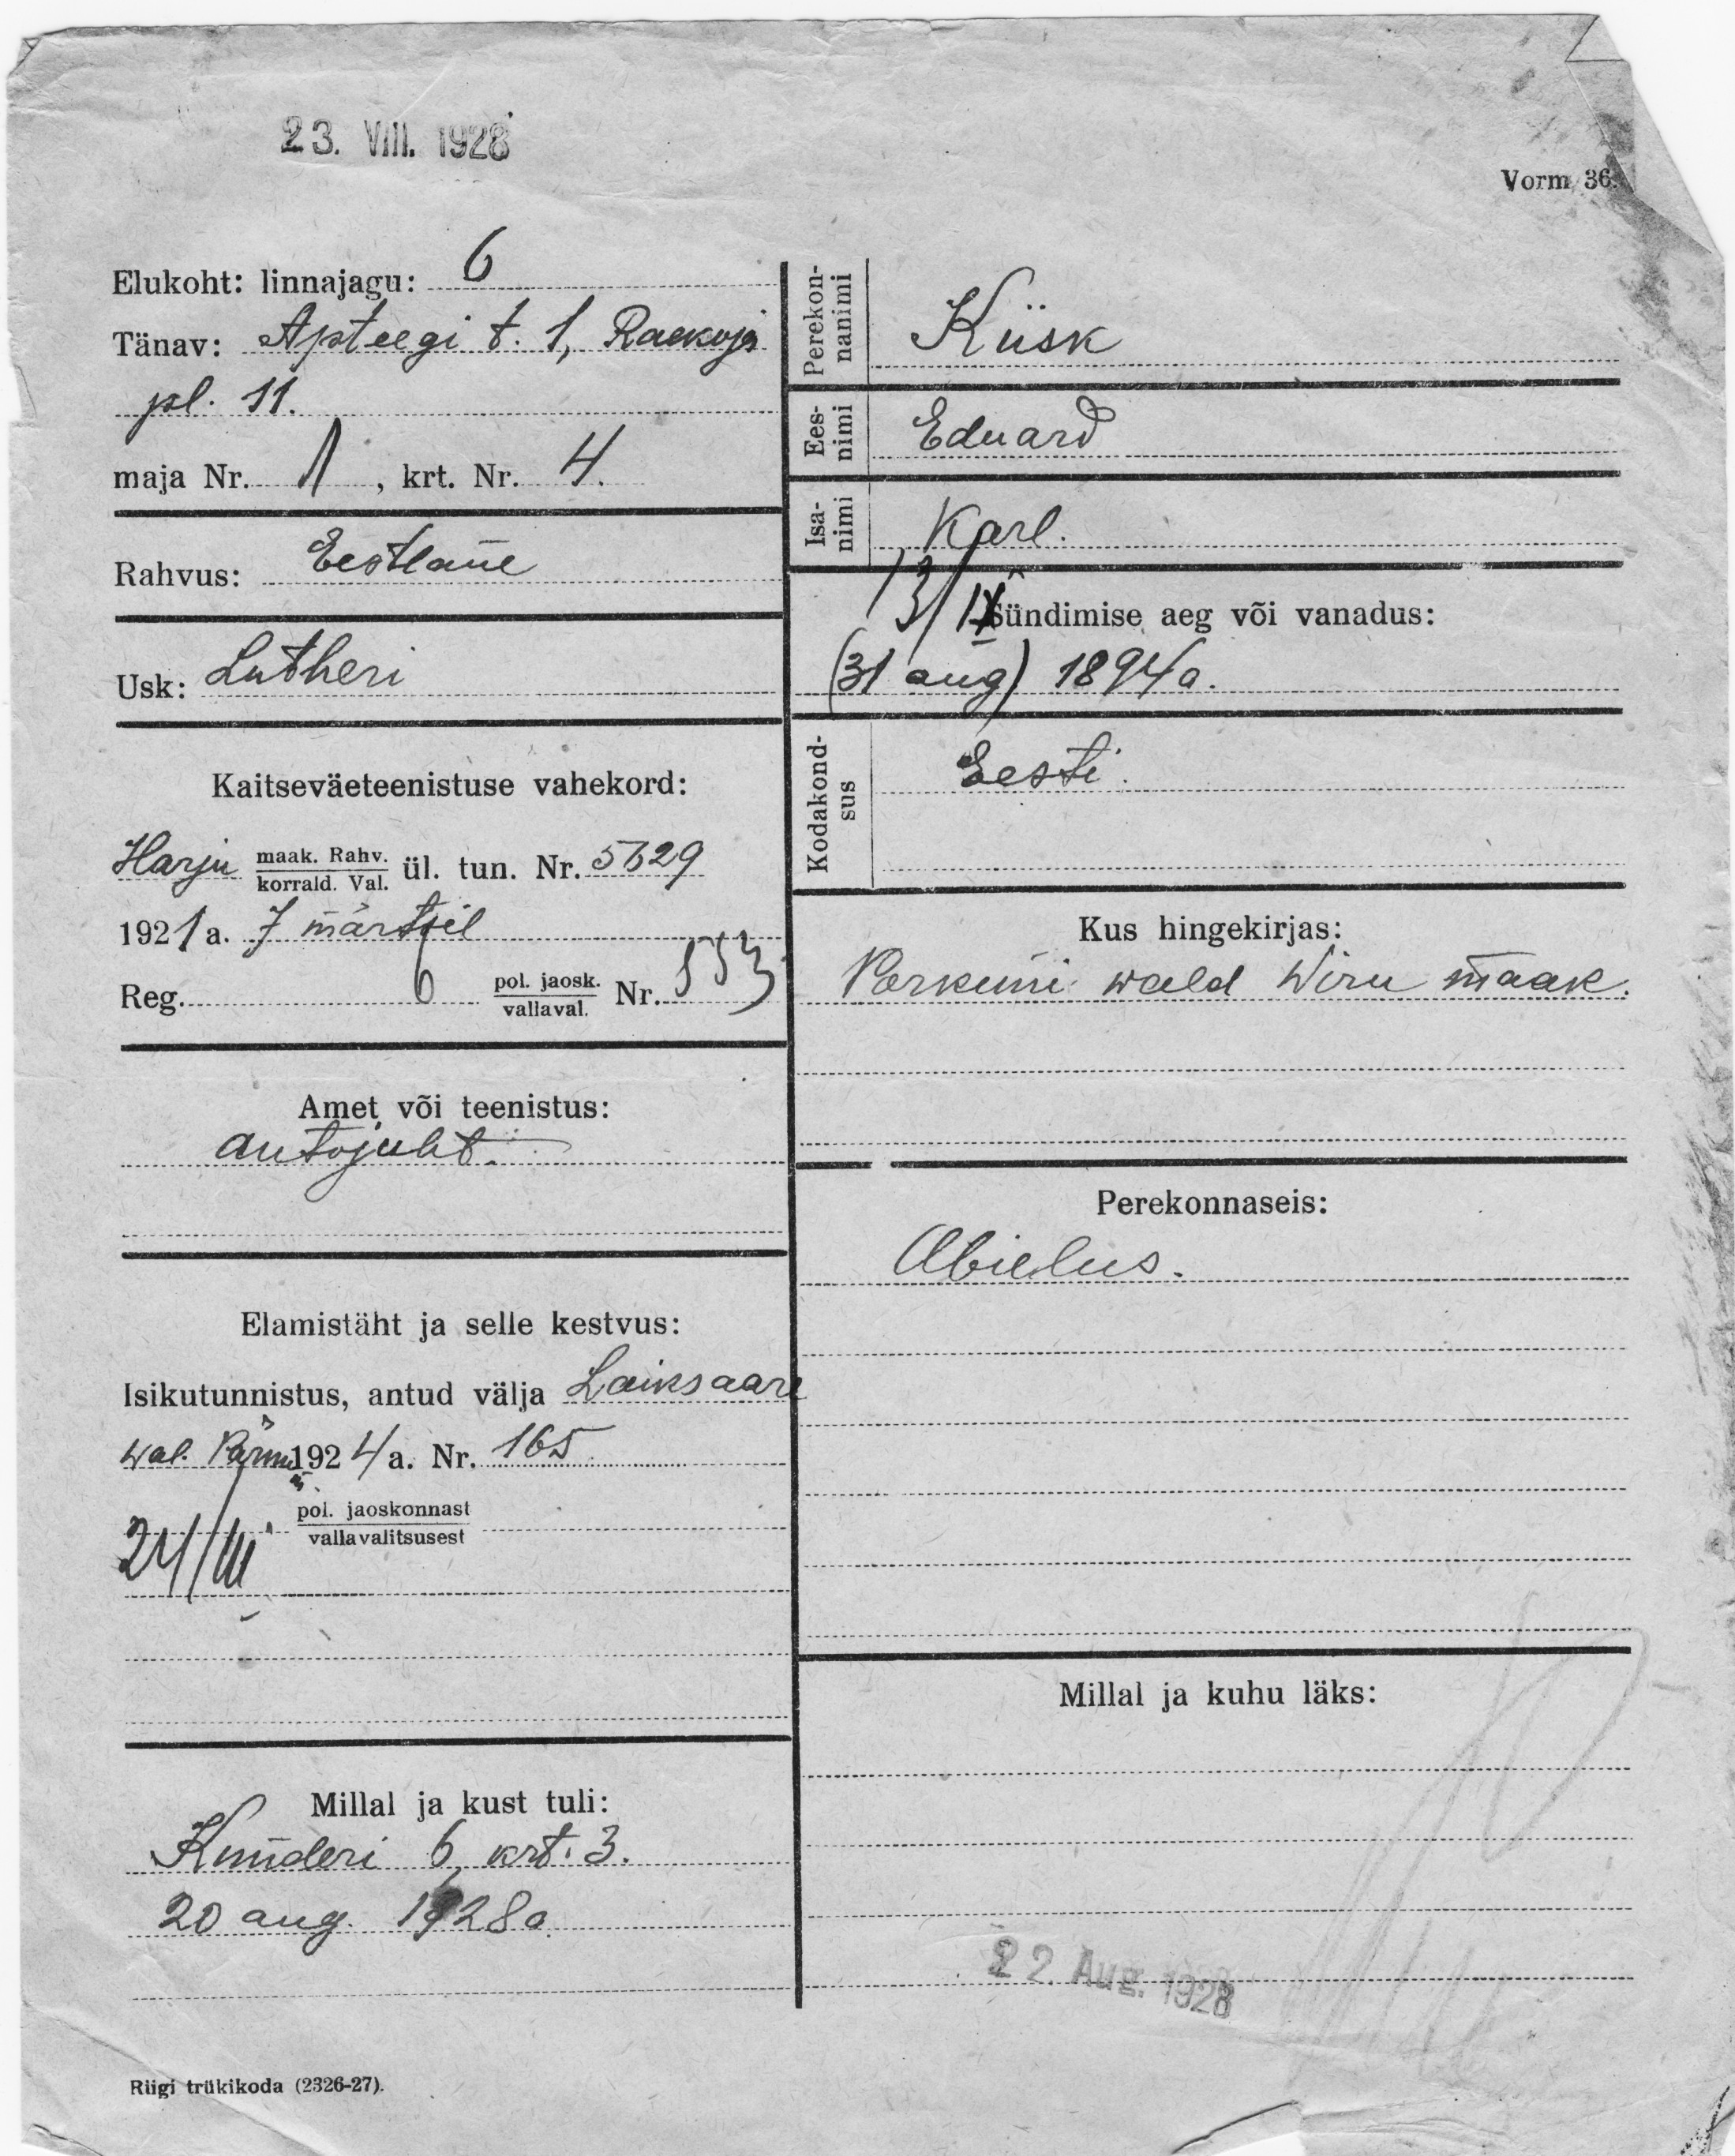 23. VIII. 1928
Vorm 36.
Elukoht: linnajagu: 6
Tänav: Apteegi t. 1, Raekoja
pl. 11.
maja Nr. 1, krt. Nr. 4.
Rahvus: Eestlane
Usk: Lutheri
Kaitseväeteenistuse vahekord:
Harju maak. Rahv. korrald. Val. ül. tun. Nr. 5629
1921 a. 7 märtsil
Reg. 6 pol. jaosk. vallaval. Nr. 553
Amet või teenistus:
autojuht.
Elamistäht ja selle kestvus:
Isikutunnistus, antud välja Laiksaare
wal. Pärnu 1924 a. Nr. 165
24/III pol. jaoskonnast
vallavalitsusest
Millal ja kust tuli:
Kunderi 6, krt. 3.
20 aug. 1928 a.
Riigi trükikoda (2326-27).
Perekonnanimi Kiisk
Eesnimi Eduard
Isanimi Karl.
13/IX Sündimise aeg või vanadus:
(31 aug) 1894 a.
Kodakondsus Eesti.
Kus hingekirjas:
Porkuni wald Wiru maak.
Perekonnaseis:
Abielus.
Millal ja kuhu läks:
22. Aug. 1928